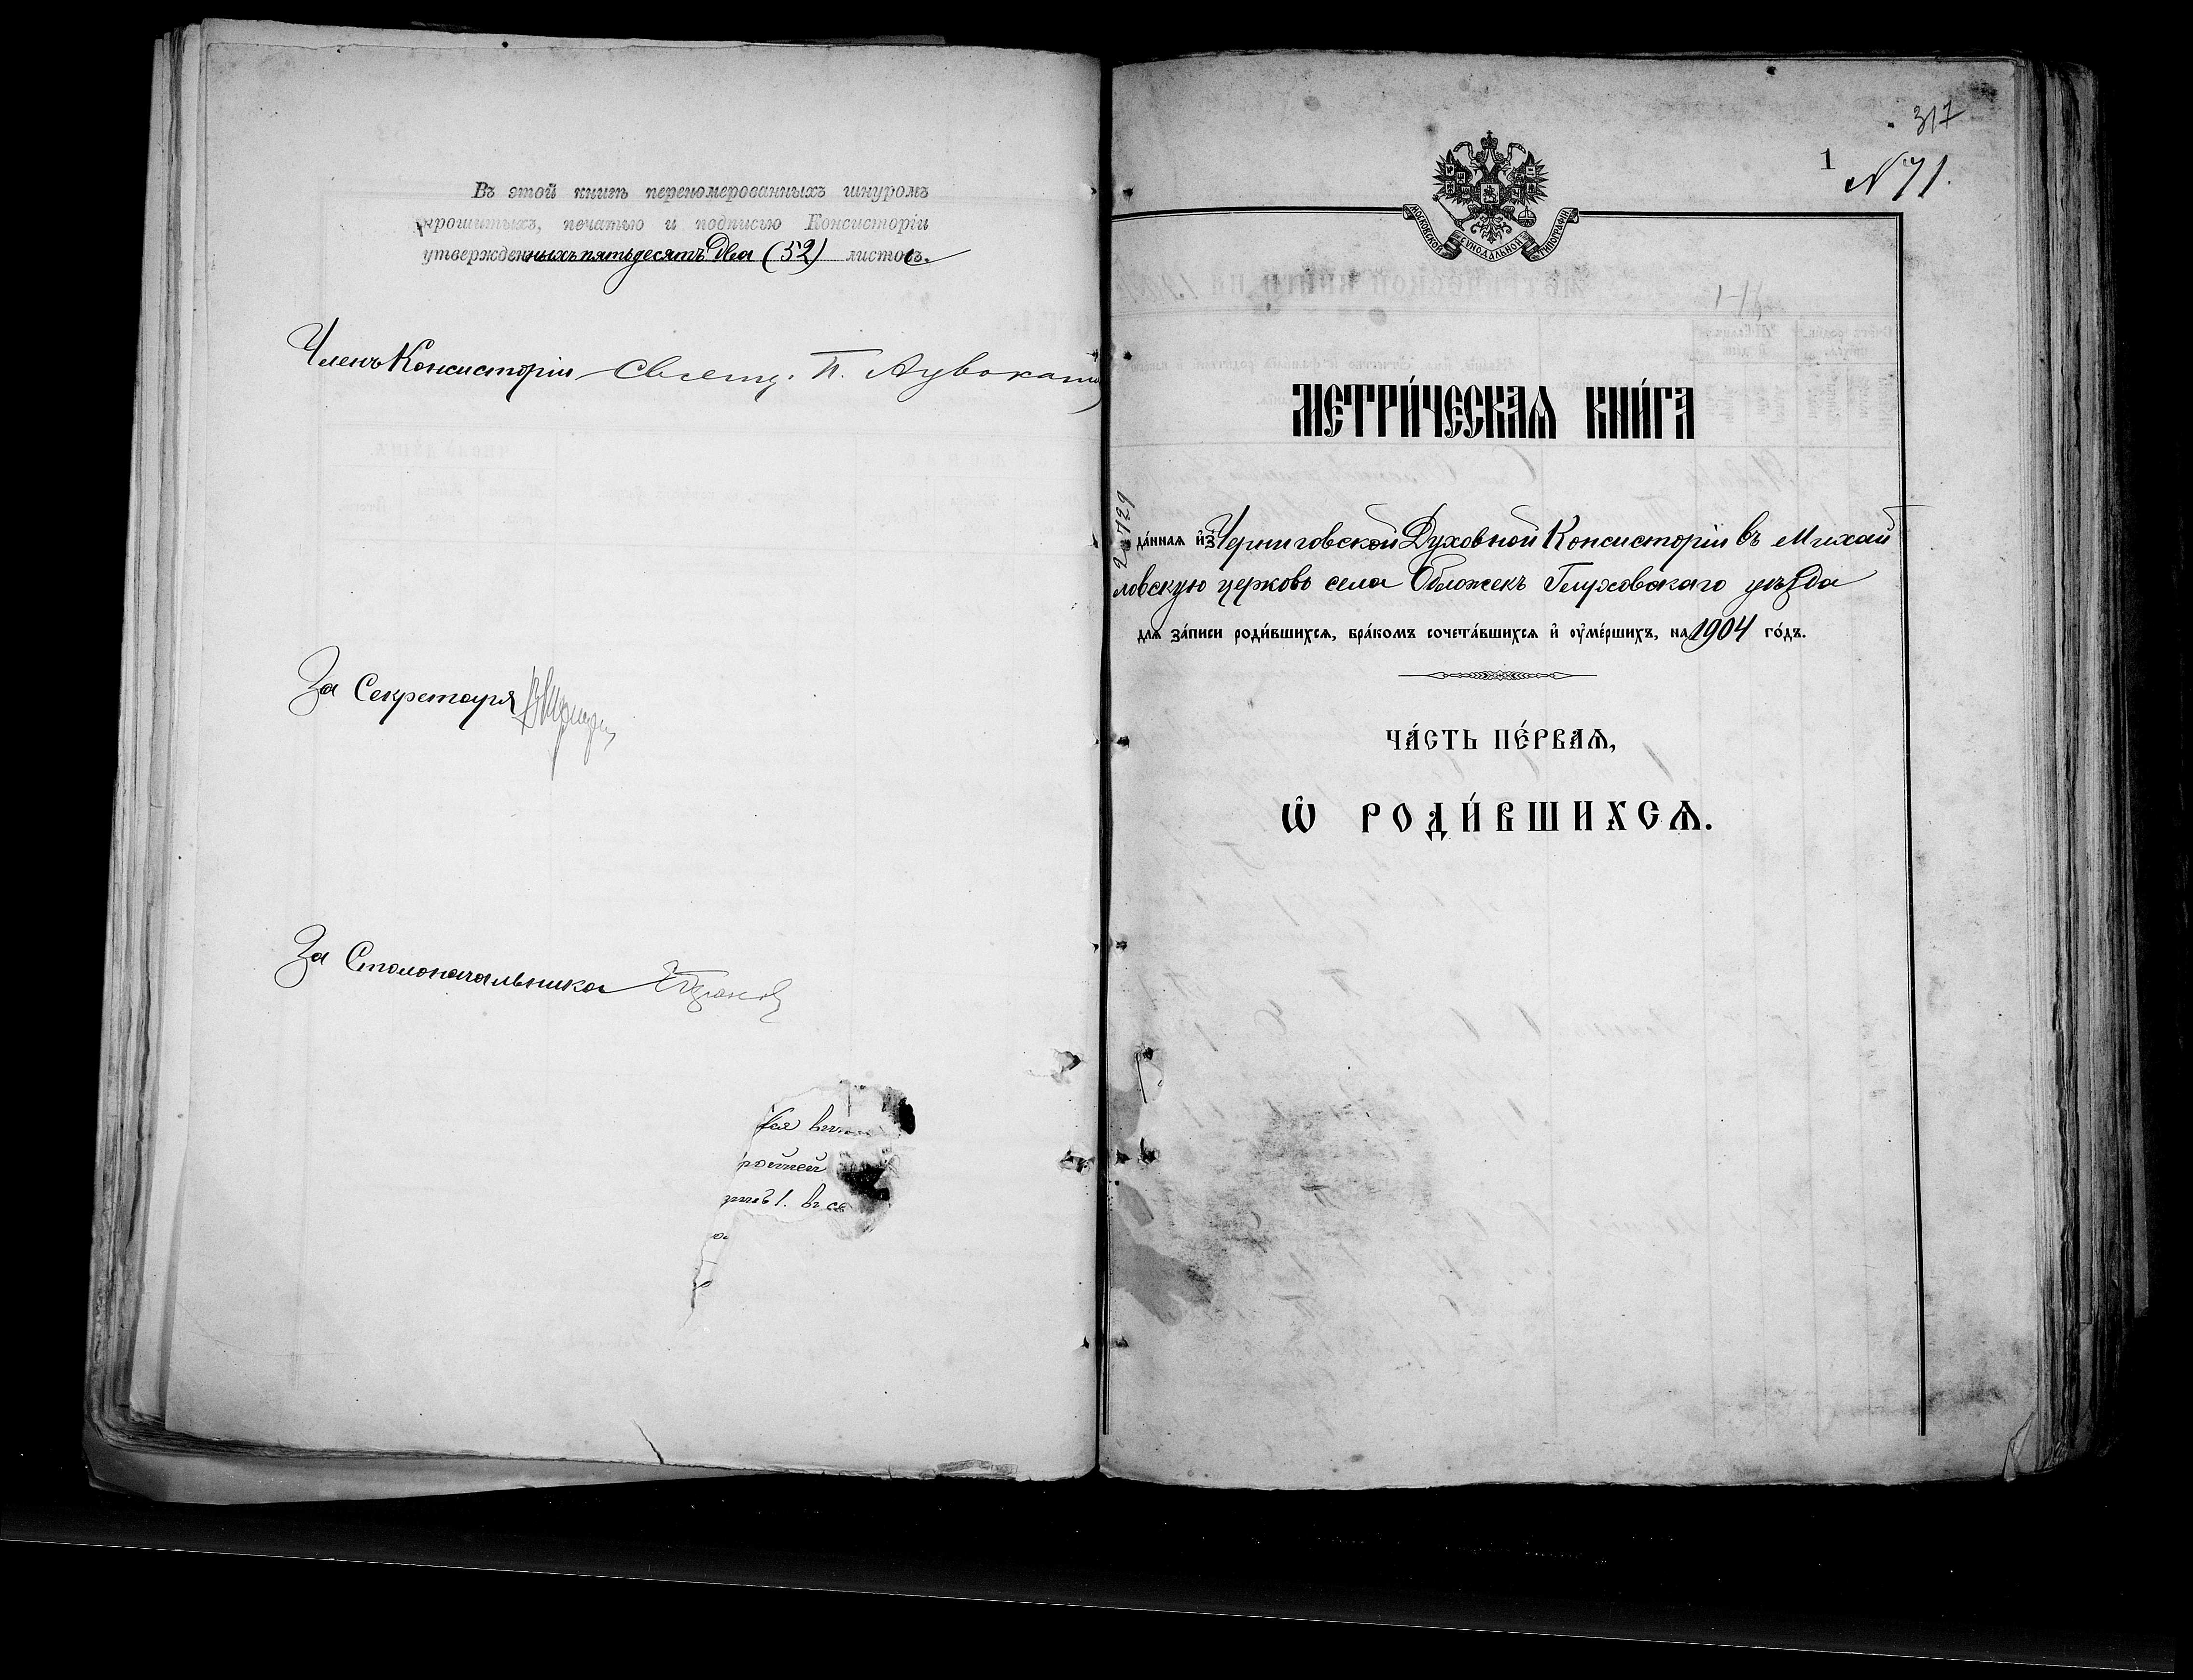 Въ этой книгѣ переномерованныхъ шнуромъ
прошитыхъ, печатью и подписью Консисторіи
утвержденныхъ пятьдесятъ два (52) листовъ.
Членъ Консисторіи Свящ. П.
За Секретаря
За Столоначальника
ройней
317
1
№ 71.
МОСКОВСКОЙ СѴНОДАЛЬНОЙ ТИПОГРАФІИ
МЕТРИ́ЧЕСКАѦ КНИ́ГА
да́ннаѧ и҆з̾ Черниговской Духовной Консисторіи въ Михай
ловскую церковь села Обложекъ Глуховскаго уѣзда
длѧ за́писи роди́вшихсѧ, бра́комъ сочета́вшихсѧ и҆ ѹ҆ме́ршихъ, на 1904 го́дъ.
ЧА́СТЬ ПЕ́РВАѦ,
Ѽ РОДИ́ВШИХСѦ.